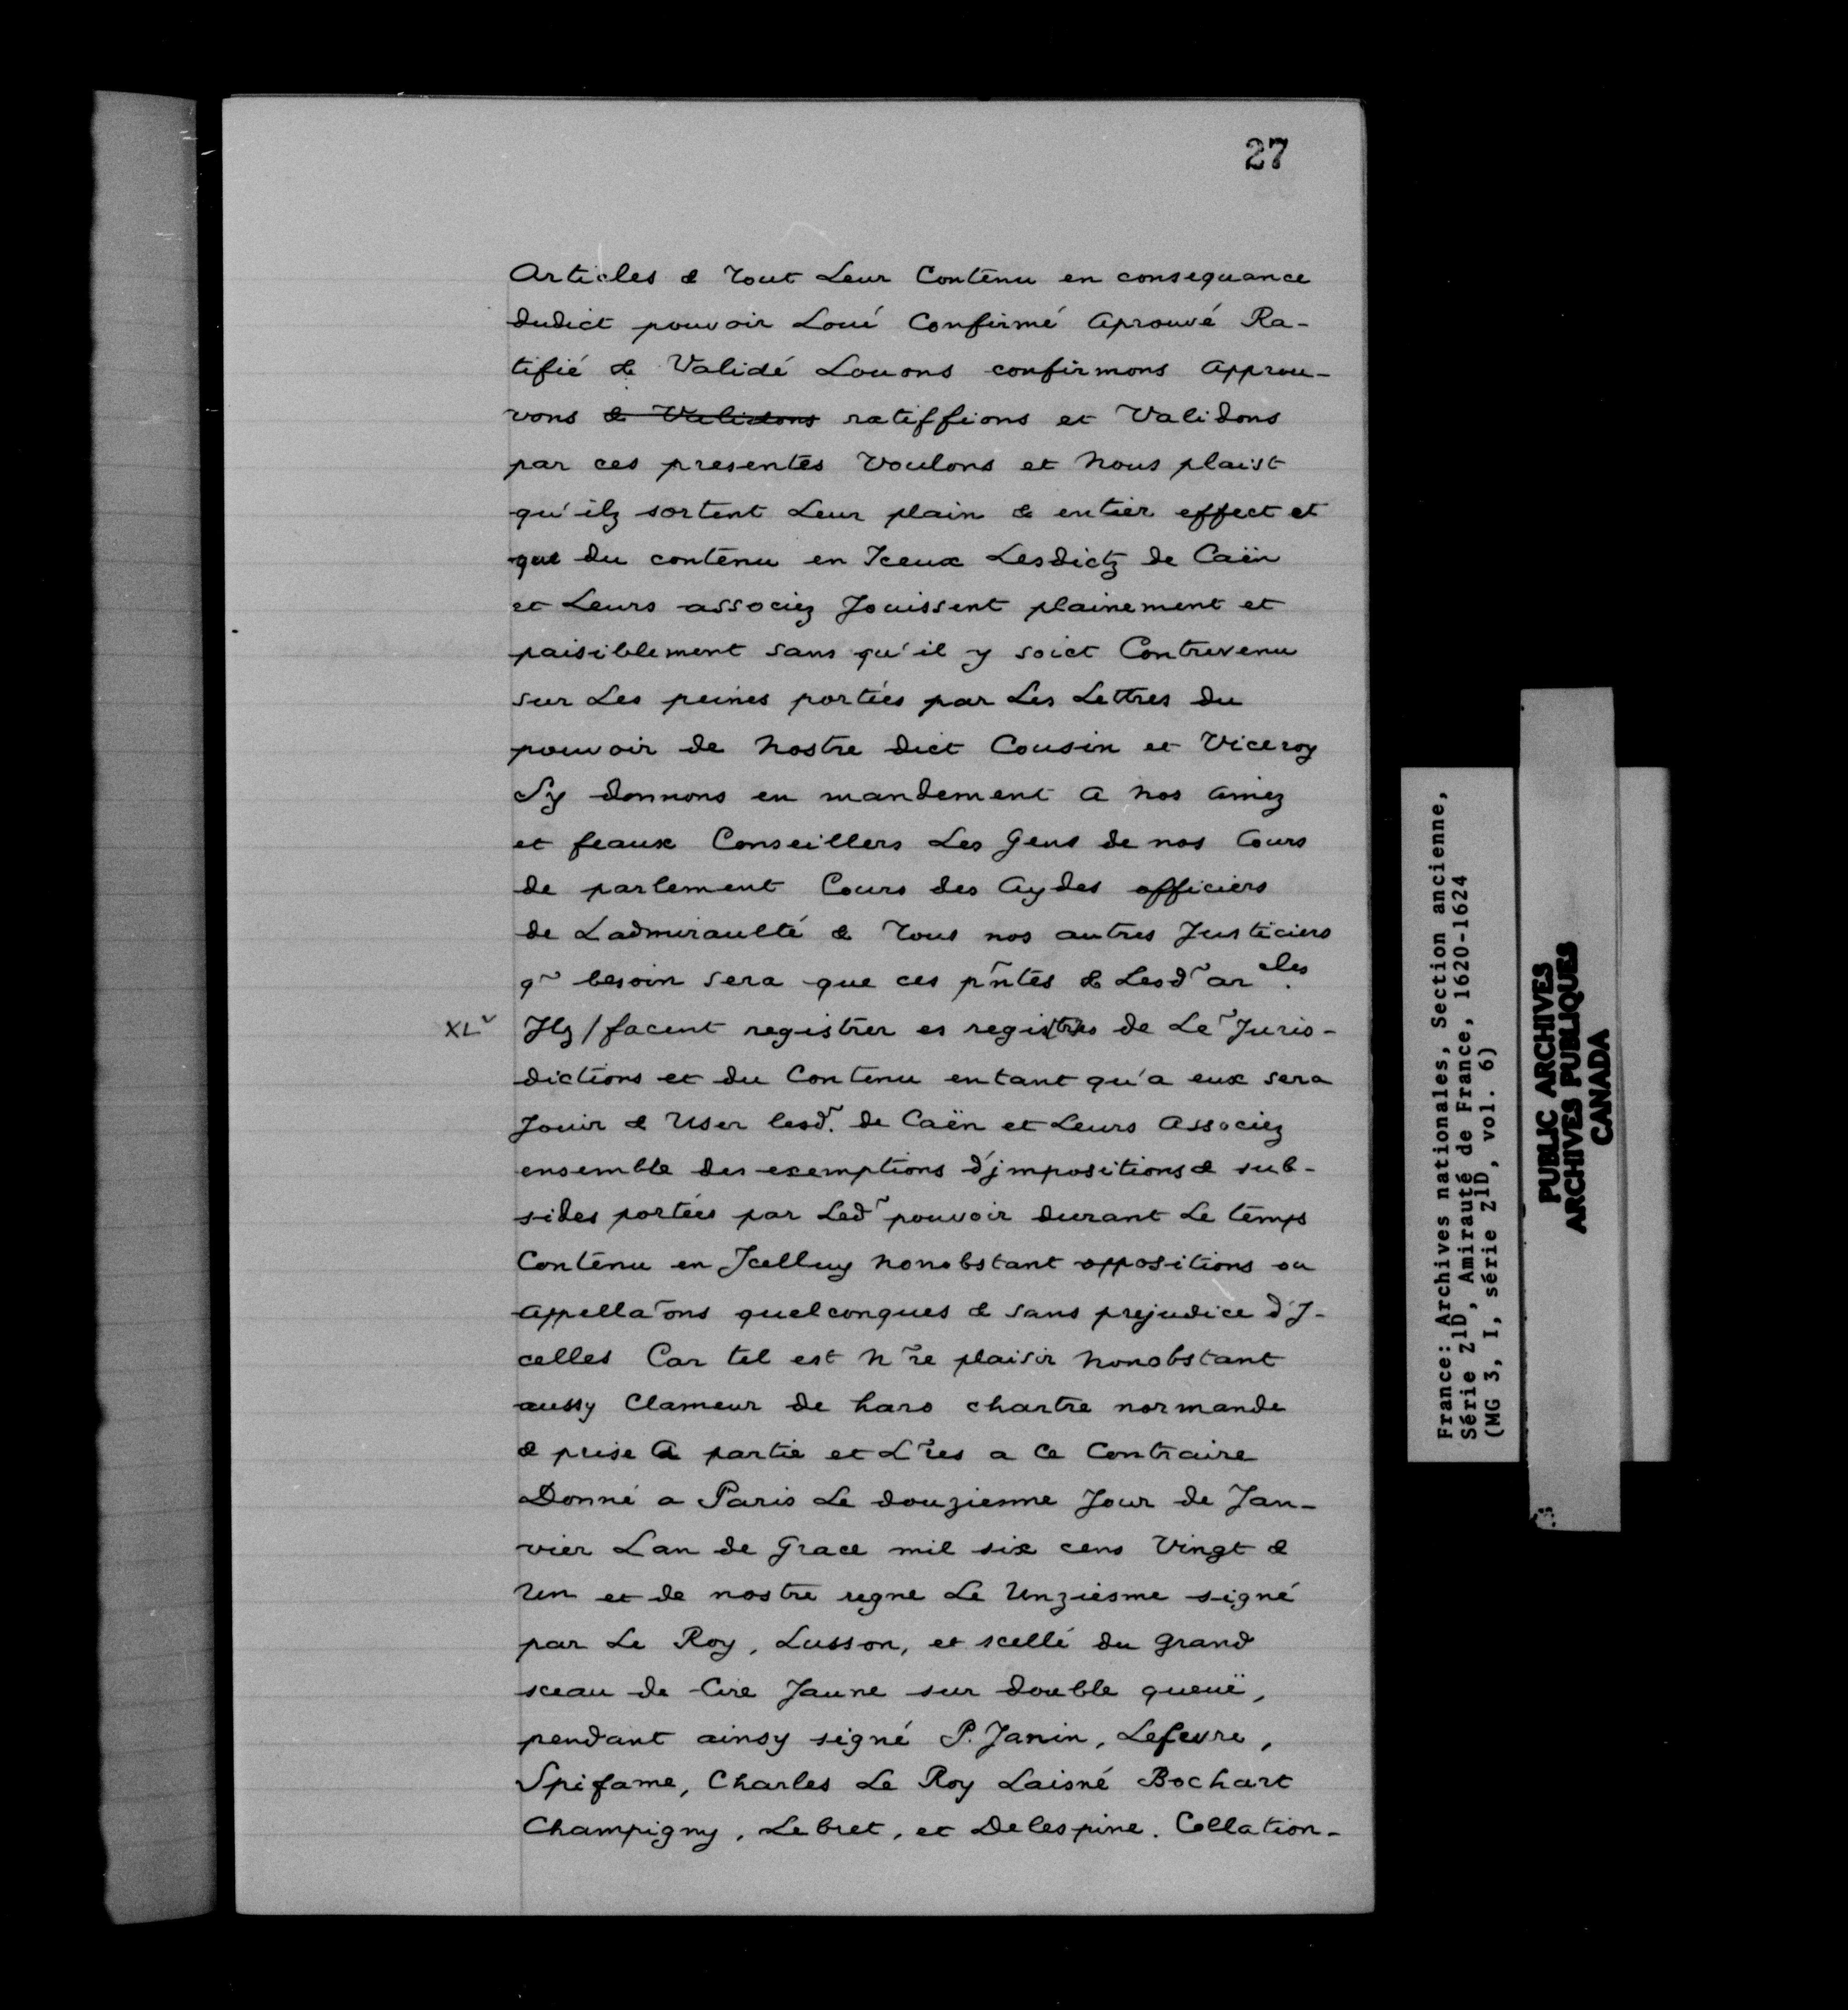 27
Articles & Tout Leur Contenu en consequance
dudict pouvoir Loué Confirmé Aprouvé Ra-
tifié & Validé Louons confirmons Approu-
vons & Validons ratiffions et Validons
par ces presentes Voulons et Nous plaist
qu'ilz sortent Leur plain & entier effect et
que du contenu en Iceux Lesdictz de Caën
et Leurs associez Jouissent plainement et
paisiblement sans qu'il y soict Contrevenu
sur Les peines portées par Les Lettres du
pouvoir de Nostre dict Cousin et Viceroy
Sy donnons en mandement A Nos Amez
et feaux Conseillers Les Gens de nos Cours
de parlement Cours des Aydes officiers
de Ladmiraulté & Tous nos autres Justiciers
q~ besoin sera que ces p~ntes & Lesd~ ar cles.
XL v Ilz / facent registrer es registres de Le~ Juris-
dictions et du Contenu entant qu'a eux sera
Jouir & User lesd~. de Caën et Leurs Associez
ensemble des exemptions d'jmpositions & sub-
sides portées par Led~ pouvoir durant Le temps
Contenu en Icelluy Nonobstant oppositions ou
Appella~ons quelconques & sans prejudice d'I-
celles Car tel est N~re plaisir Nonobstant
aussy Clameur de haro chartre normande
& prise A partie et L~res a Ce Contraire
Donné a Paris Le douzienne Jour de Jan-
vier Lan de Grace mil six cens Vingt &
Un et de nostre regne Le Unziesme signé
par Le Roy, Lusson, et scellé du grand
sceau de Cire Jaune sur double queuë,
pendant ainsy signé P. Janin, Lefevre,
Spifame, Charles Le Roy Laisné Bochart
Champigny, Lebret, et Delespine. Collation-
France: Archives nationales, Section ancienne,
Série Z1D, Amirauté de France, 1620-1624
(MG 3, I, série Z1D, vol. 6)
PUBLIC ARCHIVES
ARCHIVES PUBLIQUES
CANADA